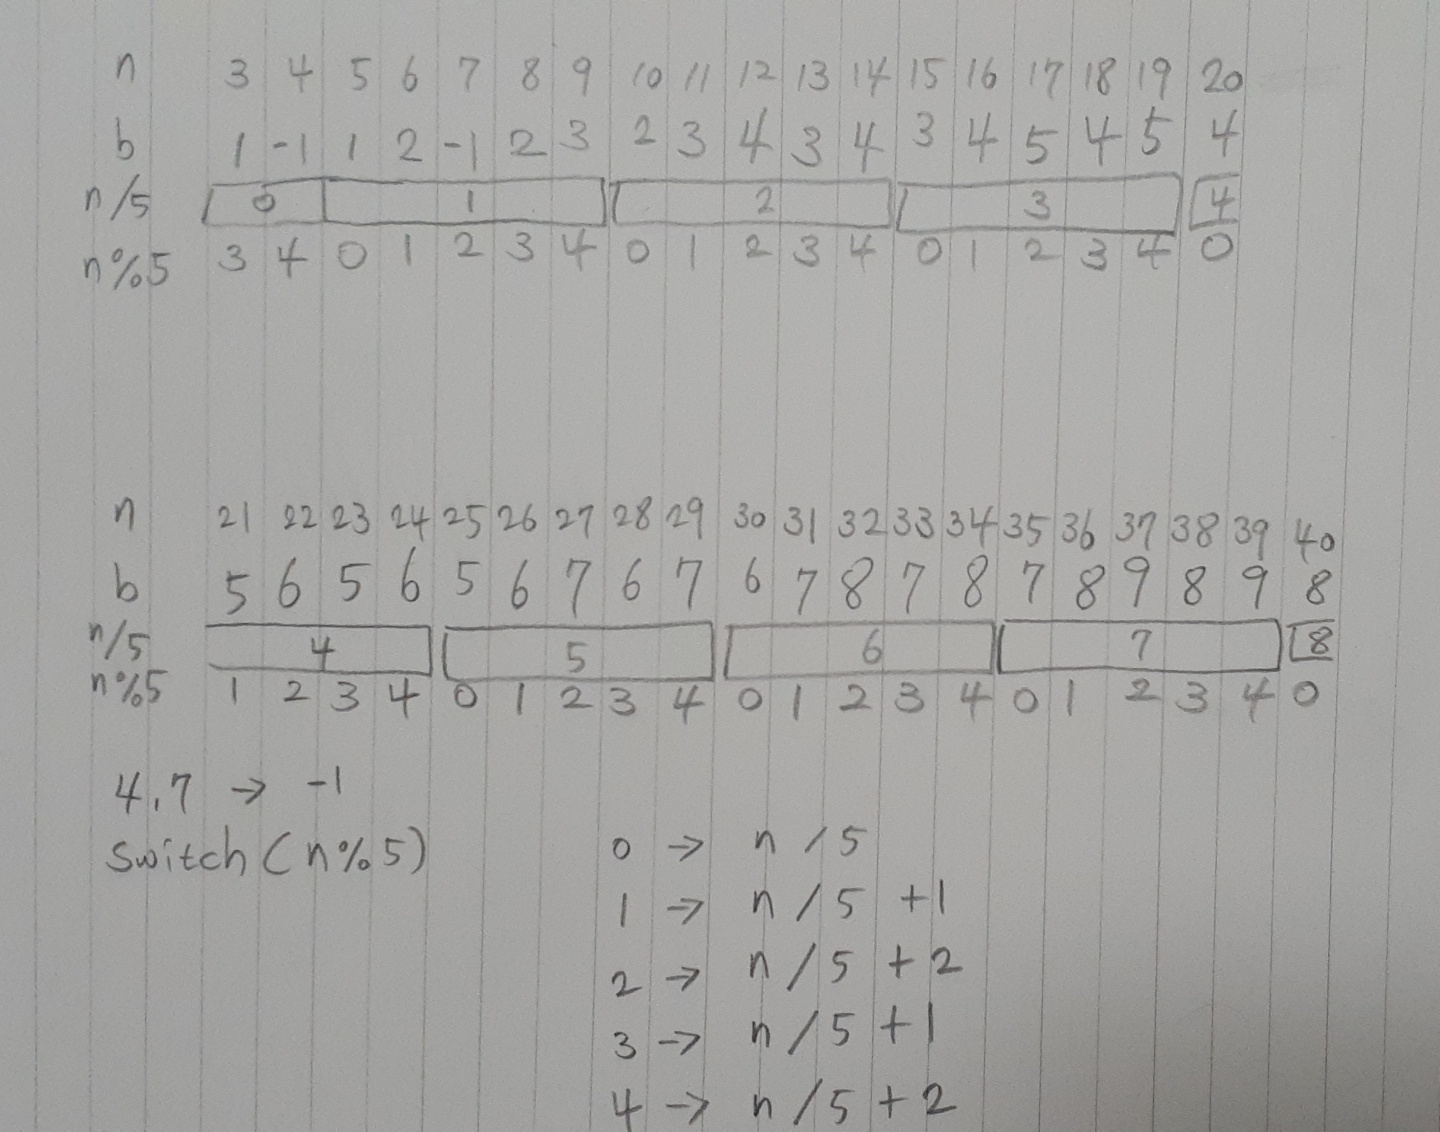 n 3 4 5 6 7 8 9 10 11 12 13 14 15 16 17 18 19 20
b 1 -1 1 2 -1 2 3 2 3 4 3 4 3 4 5 4 5 4
n/5 0 1 2 3 4
n%5 3 4 0 1 2 3 4 0 1 2 3 4 0 1 2 3 4 0
n 21 22 23 24 25 26 27 28 29 30 31 32 33 34 35 36 37 38 39 40
b 5 6 5 6 5 6 7 6 7 6 7 8 7 8 7 8 9 8 9 8
n/5 4 5 6 7 8
n%5 1 2 3 4 0 1 2 3 4 0 1 2 3 4 0 1 2 3 4 0
4,7 → -1
switch(n%5) 0 → n/5
1 → n/5 +1
2 → n/5 +2
3 → n/5 +1
4 → n/5 +2